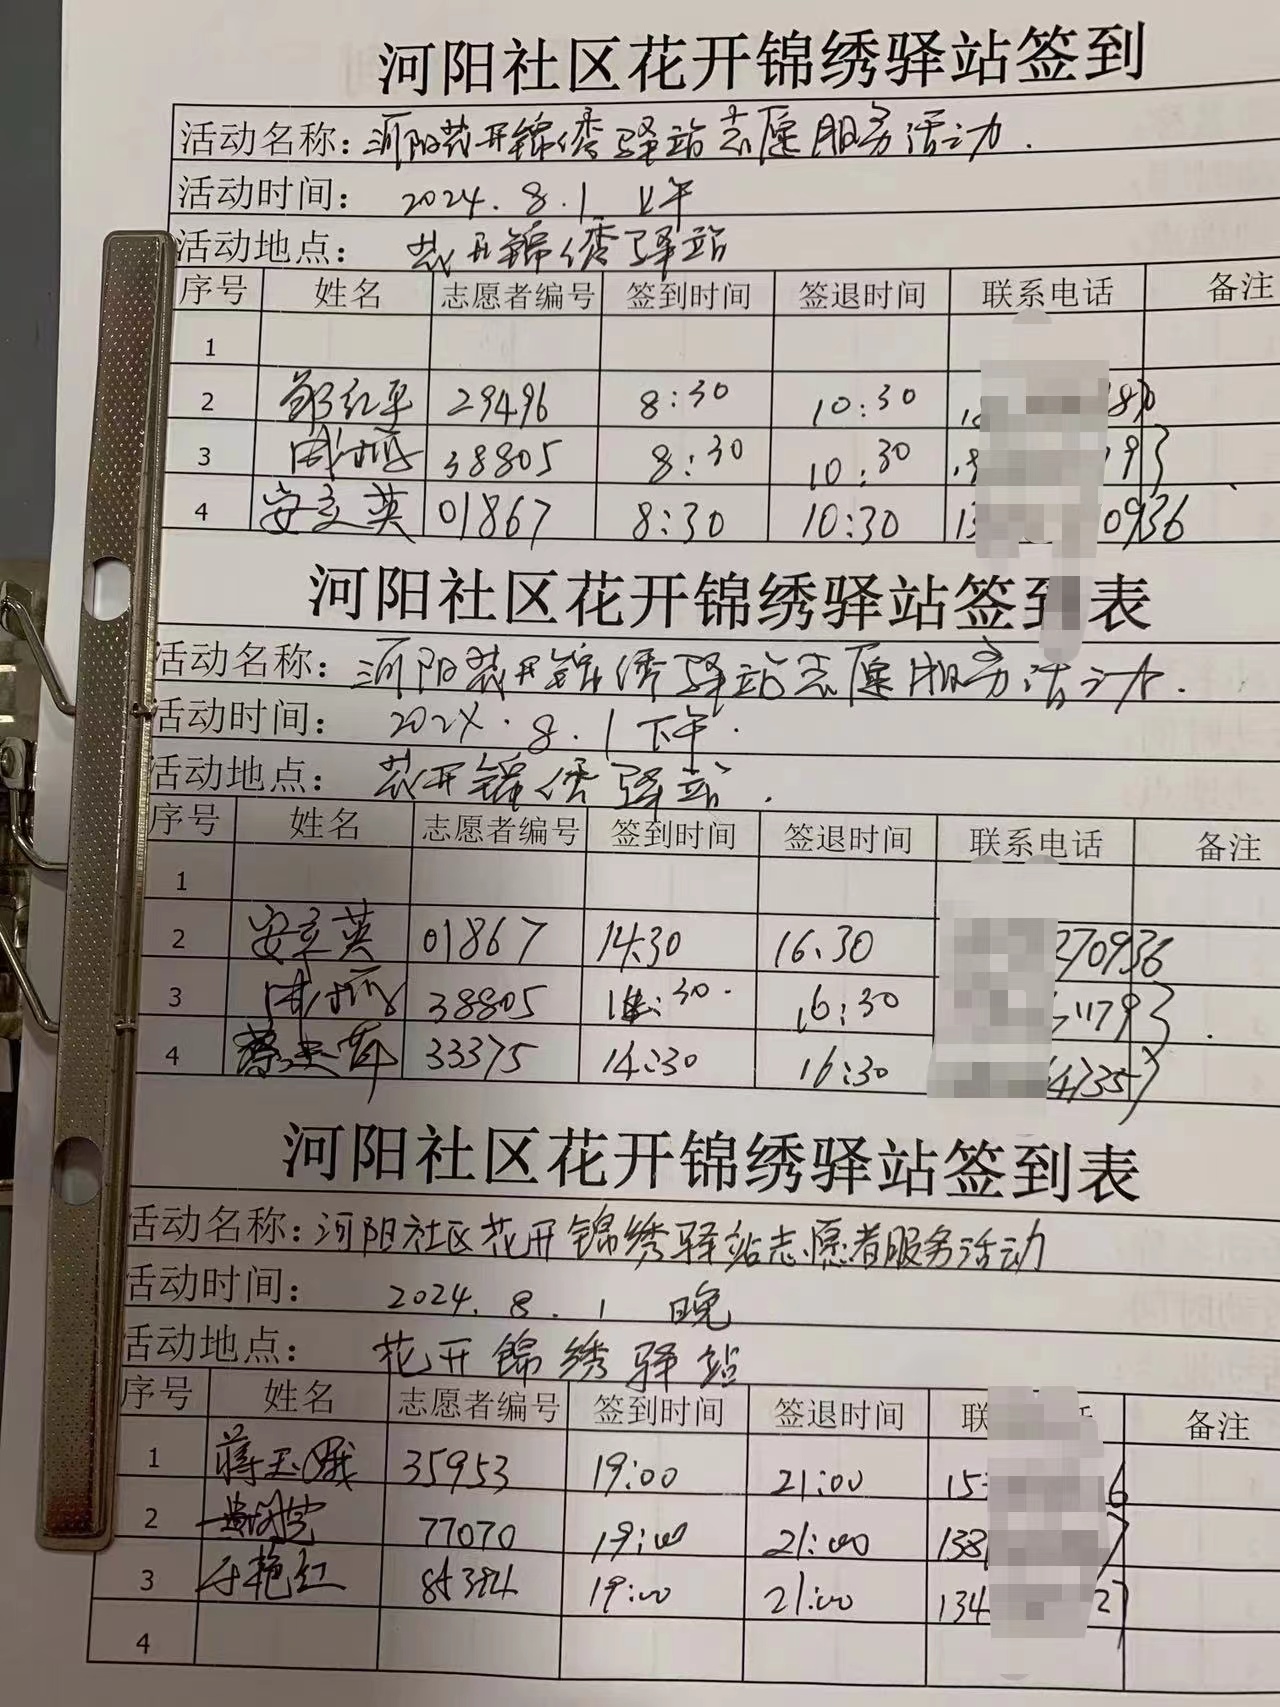 河阳社区花开锦绣驿站签到
活动名称：河阳花开锦绣驿站志愿服务活动.
活动时间： 2024.8.1 上午
活动地点： 花开锦绣驿站
序号 姓名 志愿者编号 签到时间 签退时间 联系电话 备注
1
2 红平 29496 8:30 10:30
3 38805 8:30 10:30 793
4 安立英 01867 8:30 10:30 13 0936
河阳社区花开锦绣驿站签到表
活动名称：河阳花开锦绣驿站志愿服务活动.
活动时间： 2024.8.1 下午.
活动地点： 花开锦绣驿站.
序号 姓名 志愿者编号 签到时间 签退时间 联系电话 备注
1
2 安立英 01867 14:30 16:30 270936
3 38805 14:30 16:30 11793
4 33375 14:30 16:30 47357
河阳社区花开锦绣驿站签到表
活动名称：河阳社区花开锦绣驿站志愿者服务活动
活动时间： 2024.8.1 晚
活动地点： 花开锦绣驿站
序号 姓名 志愿者编号 签到时间 签退时间 联 话 备注
1 蒋玉娥 35953 19:00 21:00 15 6
2 77070 19:00 21:00 138 7
3 于艳红 19:00 21:00 134 27
4